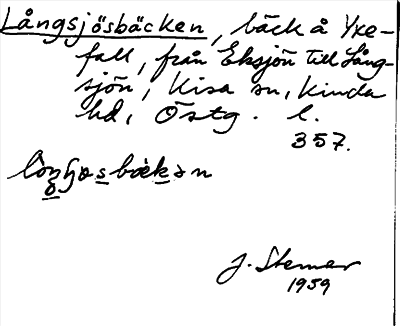 Långsjösbäcken, bäck å Yxe-
fall, från Eksjön till Lång-
sjön, Kisa sn, Kinda
hd, Östg. l.
357.
J. Sterner
1959